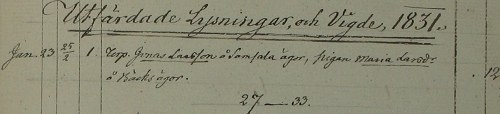 Utfärdade Lysningar, och Vigde, 1831.
Jan. 23 25/2 1. Torp. Jonas Larsson å Lamsala ägor, pigan Maria Larsdr
å Bäcks ägor. 12
27 — 33.